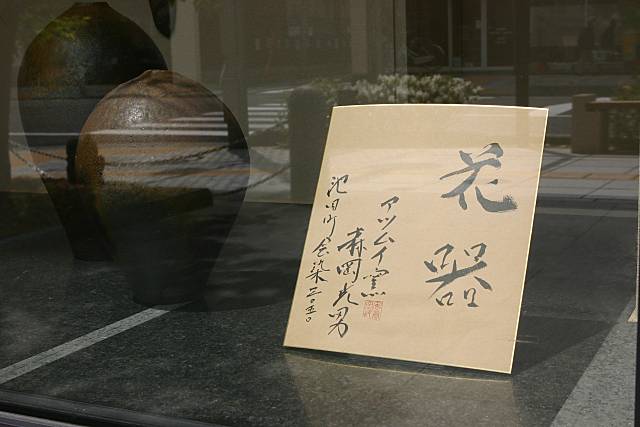 花器
アツムイ窯
森岡光男
池田町会染三〇五〇